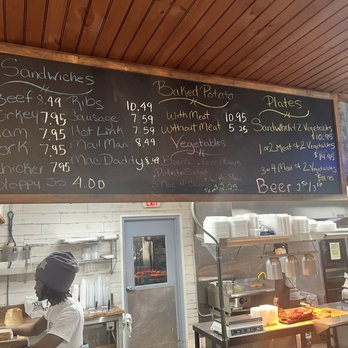 Sandwiches
Beef 8.49
Turkey 7.95
Ham 7.95
Pork 7.95
Chicken 7.95
Sloppy Jo 4.00
Ribs 10.49
Sausage 7.59
Hot Link 7.59
Mail Man 8.49
Mac Daddy 8.49
Baked Potato
With Meat 10.95
Without Meat 5.25
Vegetables
Beans
Potato Salad
Mac
Plates
Sandwich & 2 Vegetables
$10.95
1 or 2 Meat & 2 Vegetables
$14.95
3 or 4 Meat & 2 Vegetables
Beer
EXIT